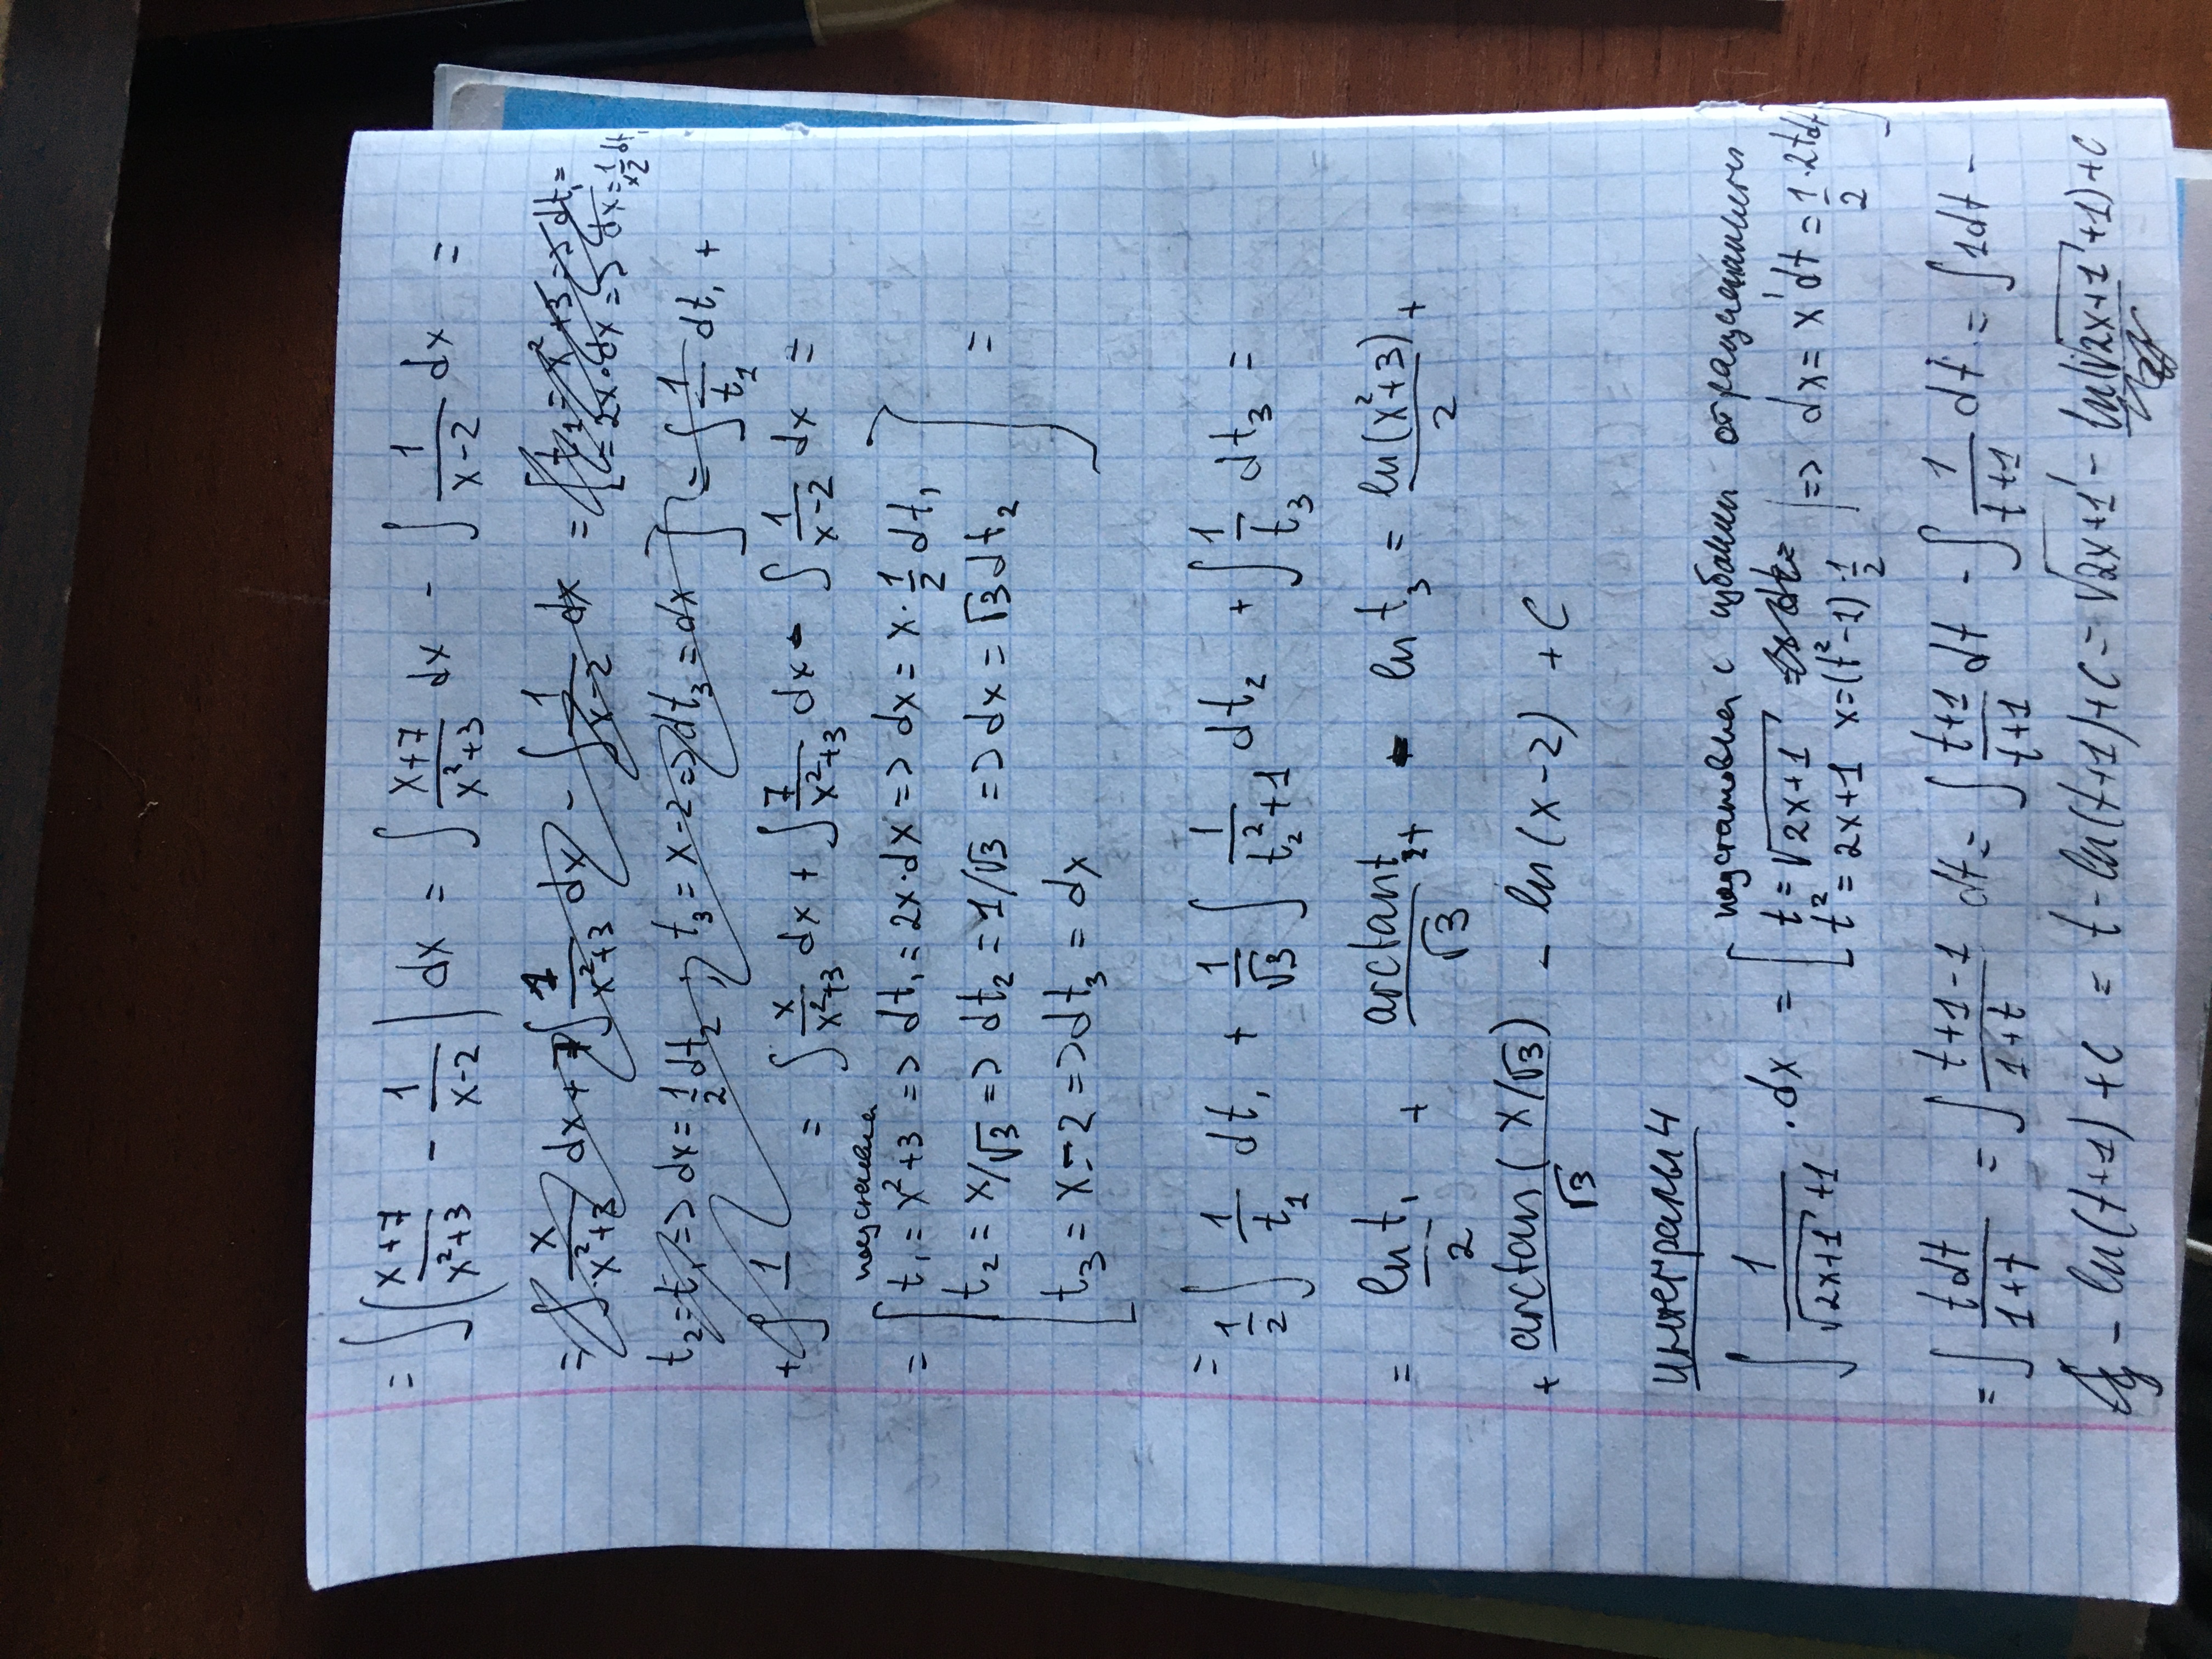 = ∫ ( (x+7)/(x²+3) - 1/(x-2) ) dx = ∫ (x+7)/(x²+3) dx - ∫ 1/(x-2) dx =
= ∫ x/(x²+3) dx + 7∫ 1/(x²+3) dx - ∫ 1/(x-2) dx = [ t₁ = x²+3 => dt₁ =
= 2x·dx => dx = 1/(x2) dt₁
t₂ = t₁ => dx = 1/2 dt₂ ; t₃ = x-2 => dt₃ = dx ] = ∫ 1/t₁ dt₁ +
+ ∫ 1 = ∫ x/(x²+3) dx + ∫ 7/(x²+3) dx - ∫ 1/(x-2) dx =
подстановка
= [ t₁ = x²+3 => dt₁ = 2x·dx => dx = x·1/2 dt₁
t₂ = x/√3 => dt₂ = 1/√3 => dx = √3 dt₂ ] =
t₃ = x-2 => dt₃ = dx
= 1/2 ∫ 1/t₁ dt₁ + 1/√3 ∫ 1/(t₂²+1) dt₂ + ∫ 1/t₃ dt₃ =
= ln t₁/2 + arctan t₂/√3 - ln t₃ = ln(x²+3)/2 +
+ arctan(x/√3)/√3 - ln(x-2) + C
интегралы 4
подстановка с избавл от рациональности
∫ 1/(√(2x+1)+1) · dx = [ t = √(2x+1) => dt =
t² = 2x+1 x = (t²-1)·1/2 | => dx = x'dt = 1/2·2tdt ]
= ∫ tdt/(1+t) = ∫ (t+1-1)/(1+t) dt = ∫ (t+1)/(t+1) dt - ∫ 1/(t+1) dt = ∫ 1dt -
- ln(t+1) + C = t - ln(t+1) + C = √(2x+1) - ln(√(2x+1)+1) + C